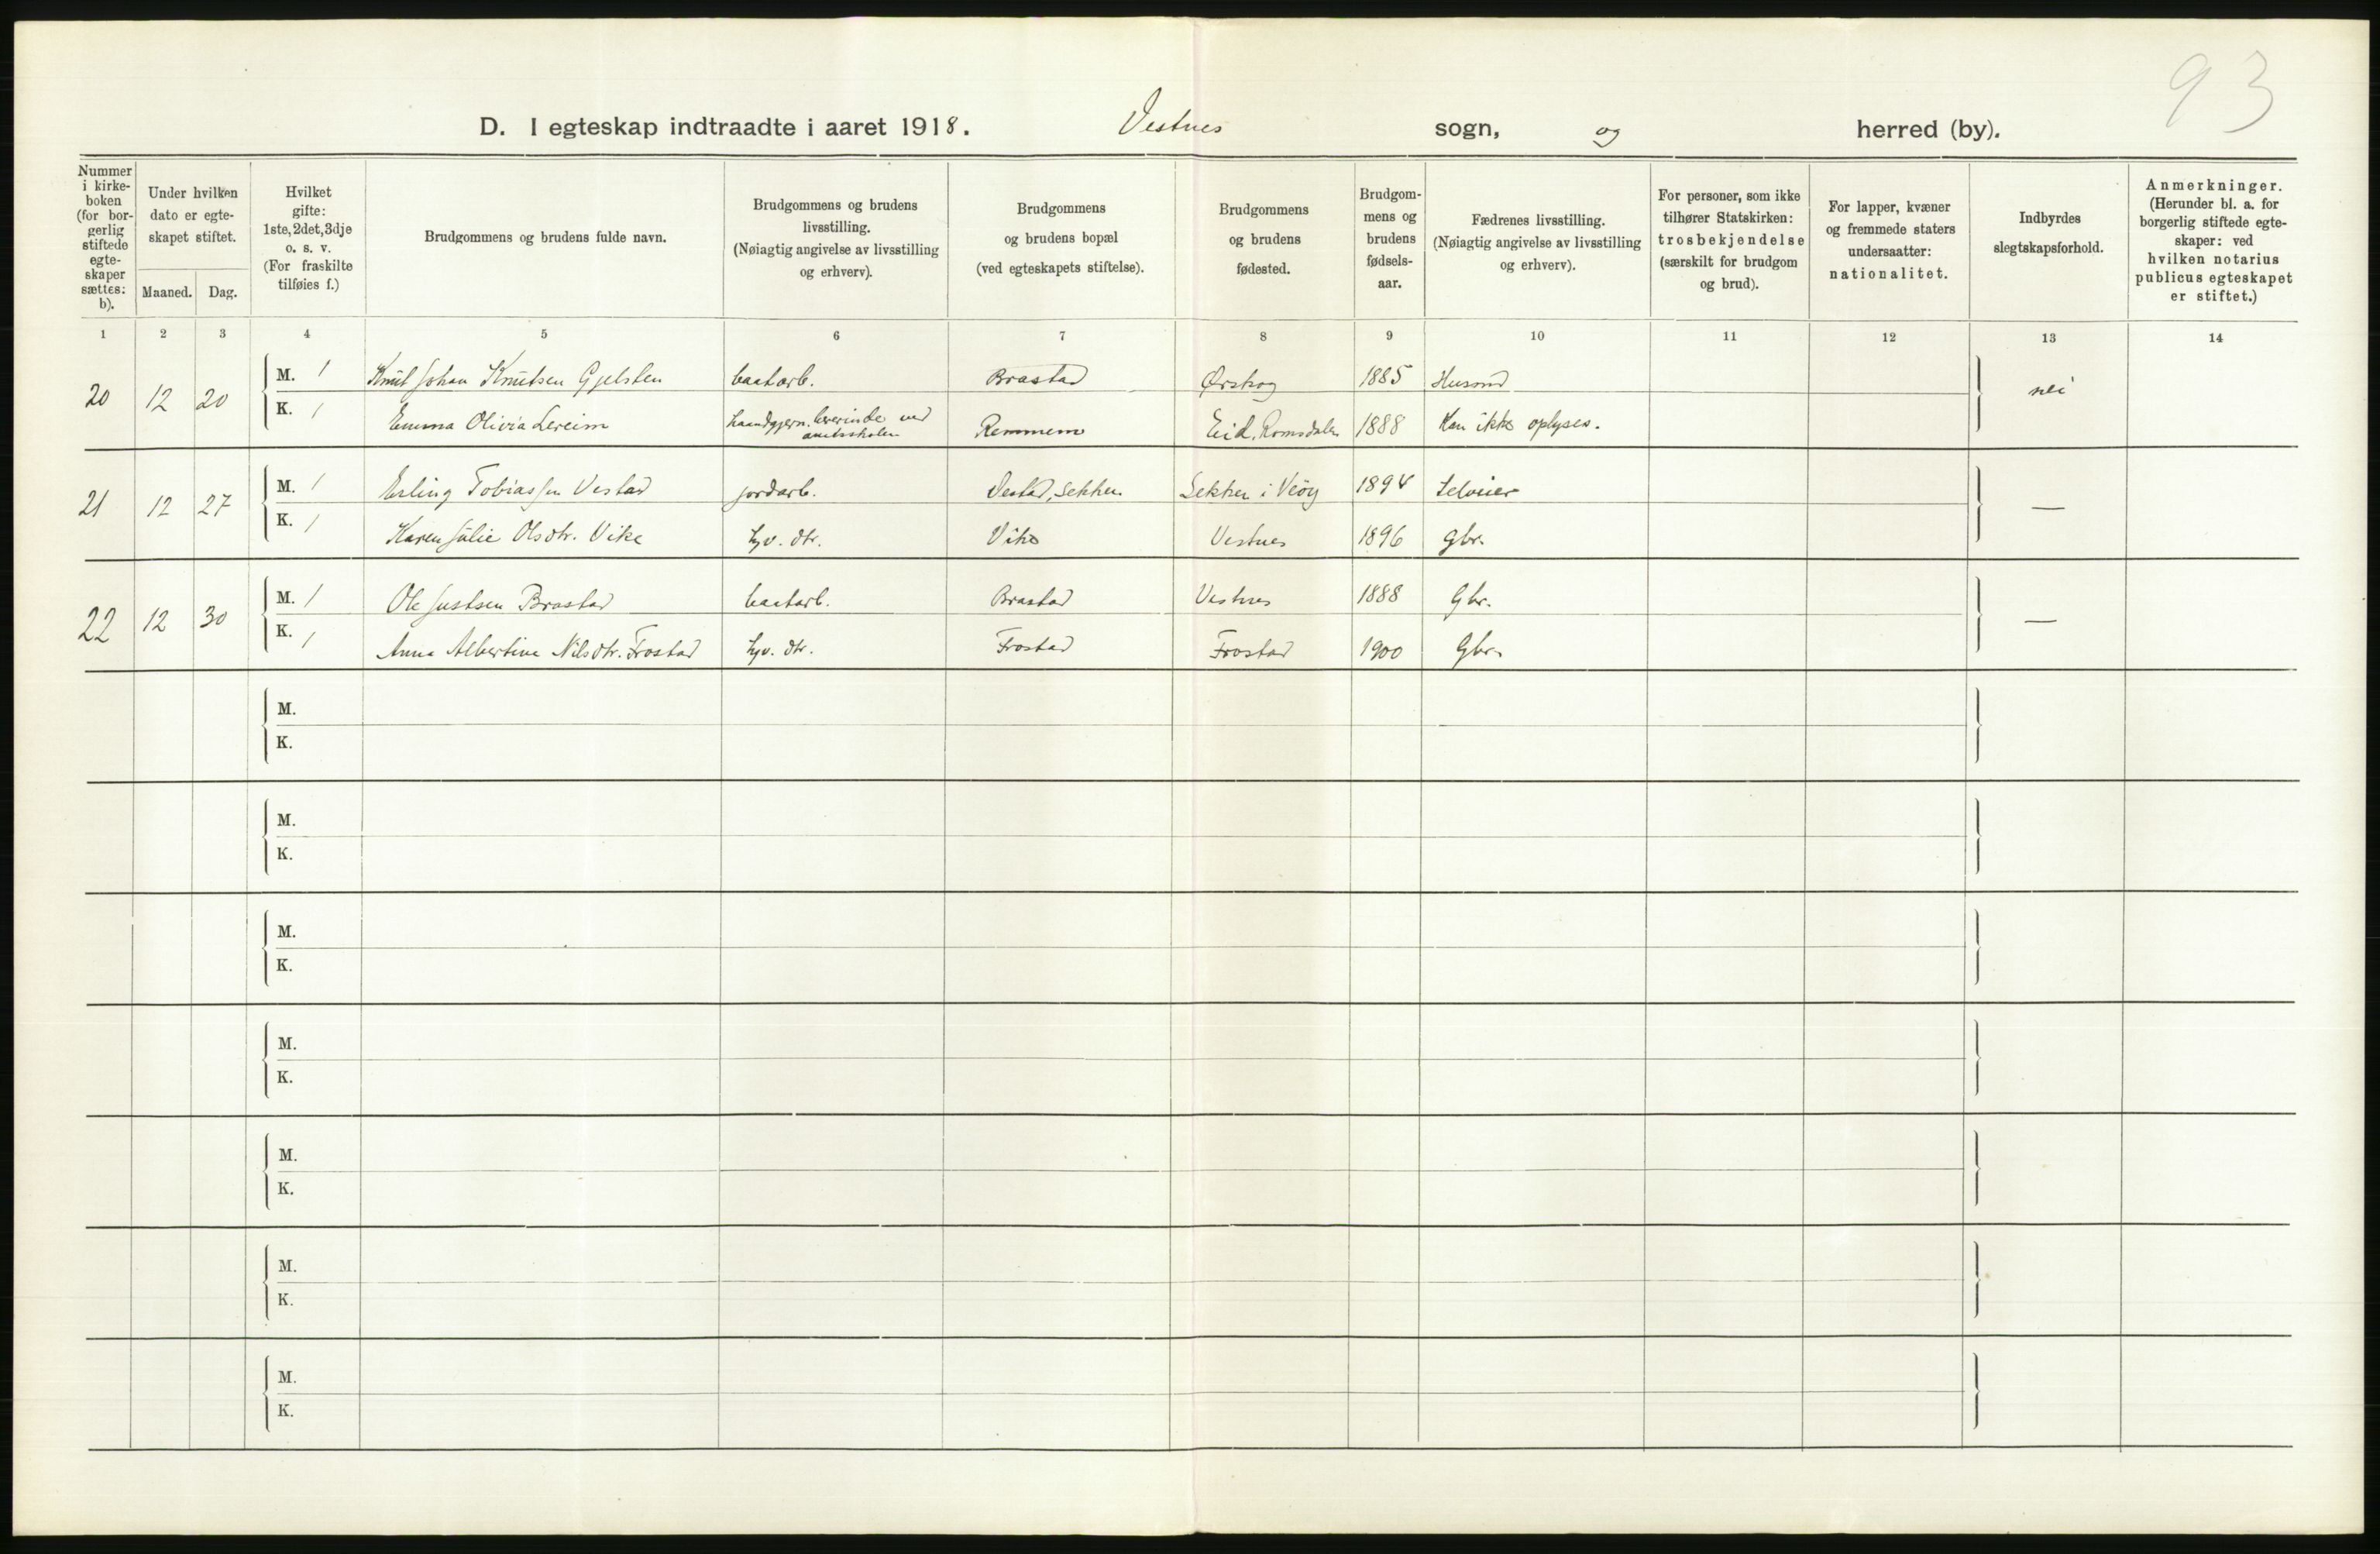 93
D. I egteskap indtraadte i aaret 1918. Vestnes sogn, og herred (by).
Nummer i kirke- boken (for bor- gerlig stiftede egte- skaper sættes: b).
Under hvilken dato er egte- skapet stiftet.
Maaned. Dag.
Hvilket gifte: 1ste, 2det, 3dje o. s. v. (For fraskilte tilføies f.)
Brudgommens og brudens fulde navn.
Brudgommens og brudens livsstilling. (Nøiagtig angivelse av livsstilling og erhverv).
Brudgommens og brudens bopæl (ved egteskapets stiftelse).
Brudgommens og brudens fødested.
Brudgom- mens og brudens fødsels- aar.
Fædrenes livsstilling. (Nøiagtig angivelse av livsstilling og erhverv).
For personer, som ikke tilhører Statskirken: trosbekjendelse (særskilt for brudgom og brud).
For lapper, kvæner og fremmede staters undersaatter: nationalitet.
Indbyrdes slegtskapsforhold.
Anmerkninger. (Herunder bl. a. for borgerlig stiftede egte- skaper: ved hvilken notarius publicus egteskapet er stiftet.)
1 2 3 4 5 6 7 8 9 10 11 12 13 14
20 12 20 M. 1 Knut Johan Knutsen Gjelsten baatarb. Brastad Ørskog 1885 Husmd nei
K. 1 Emma Olivia Lereim haandgjern. lærerinde ved amtsskolen Remmem Eid, Romsdalen 1888 Kan ikke oplyses.
21 12 27 M. 1 Erling Tobiassen Vestad jordarb. Vestad, Sekken Sekken i Veöy 1894 Selveier —
K. 1 Karen Julie Olsdtr. Vike hjv. dtr. Vike Vestnes 1896 gbr.
22 12 30 M. 1 Ole Justsen Brastad baatarb. Brastad Vestnes 1888 Gbr. —
K. 1 Anna Albertine Nilsdtr. Frostad hjv. dtr. Frostad Frostad 1900 Gbr.
M.
K.
M.
K.
M.
K.
M.
K.
M.
K.
M.
K.
M.
K.